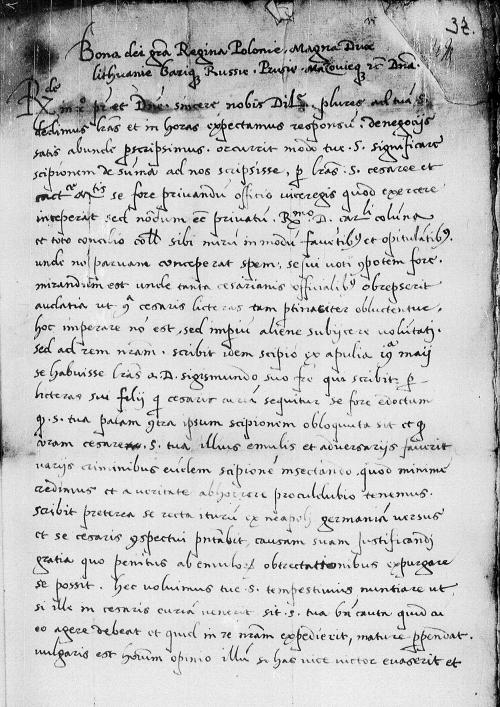 37.
Bona dei gra Regina Polonie. Magna Dux
lithuanie bariq Russie. Prusie. Mazovieq zc Dna.
Rde in χ pr et Dne. sincere nobis Dil. plures ad tuā .S.
dedimus lras et in horas expectamus responsū. de negocijs
satis abunde pscripsimus. occurrit modo tue .S. significare
scipionem de suma ad nos scripsisse, p lras .S. cesaree et
se fore privandū officio viceregis quod exercere
inceperat sed nōdum eē privatū. Rmo D. car li colūna
et toto concilio sibi mirū in modū faventibq et opitulatibq.
unde no parvam conceperat spem, se sui voti 9potem fore.
mirandum est unde tanta cesarianis officialibq obrepserit
audatia ut 9 cesaris licteras tam ptinaciter obluctentur.
hoc imperare no est, sed imperiū aliene subijcere volūtati.
sed ad rem nram. scribit idem scipio ex apulia maij
se habuisse lras a D. sigismundo suo fre qui scribit p
licteras sui filij q cesaris curiā sequitur se fore edoctum
q .S. tua palam 9tra ipsum scipionem obloquuta sit et q
coram cesare .S. tua illius emulis et adversarijs faverit
varijs criminibus eudem scipionē insectando. quod minime
credimus et a veritate abhorrere proculdubio tenemus.
scribit preterea se recta iturū ex neapoli germaniā versus
et se cesaris 9spectui pntabit, causam suam justificandi
gratia quo penitus ab emulorū obtrectationibus expurgare
se possit. hec volumus tue .S. tempestivius nuntiare ut
si ille in cesaris curiā venerit sit .S. tua bn cauta quid cū
eo agere debeat et quid in re nram expedierit, mature ppendat.
vulgaris est hominum opinio illū si hac vice victor evaserit et